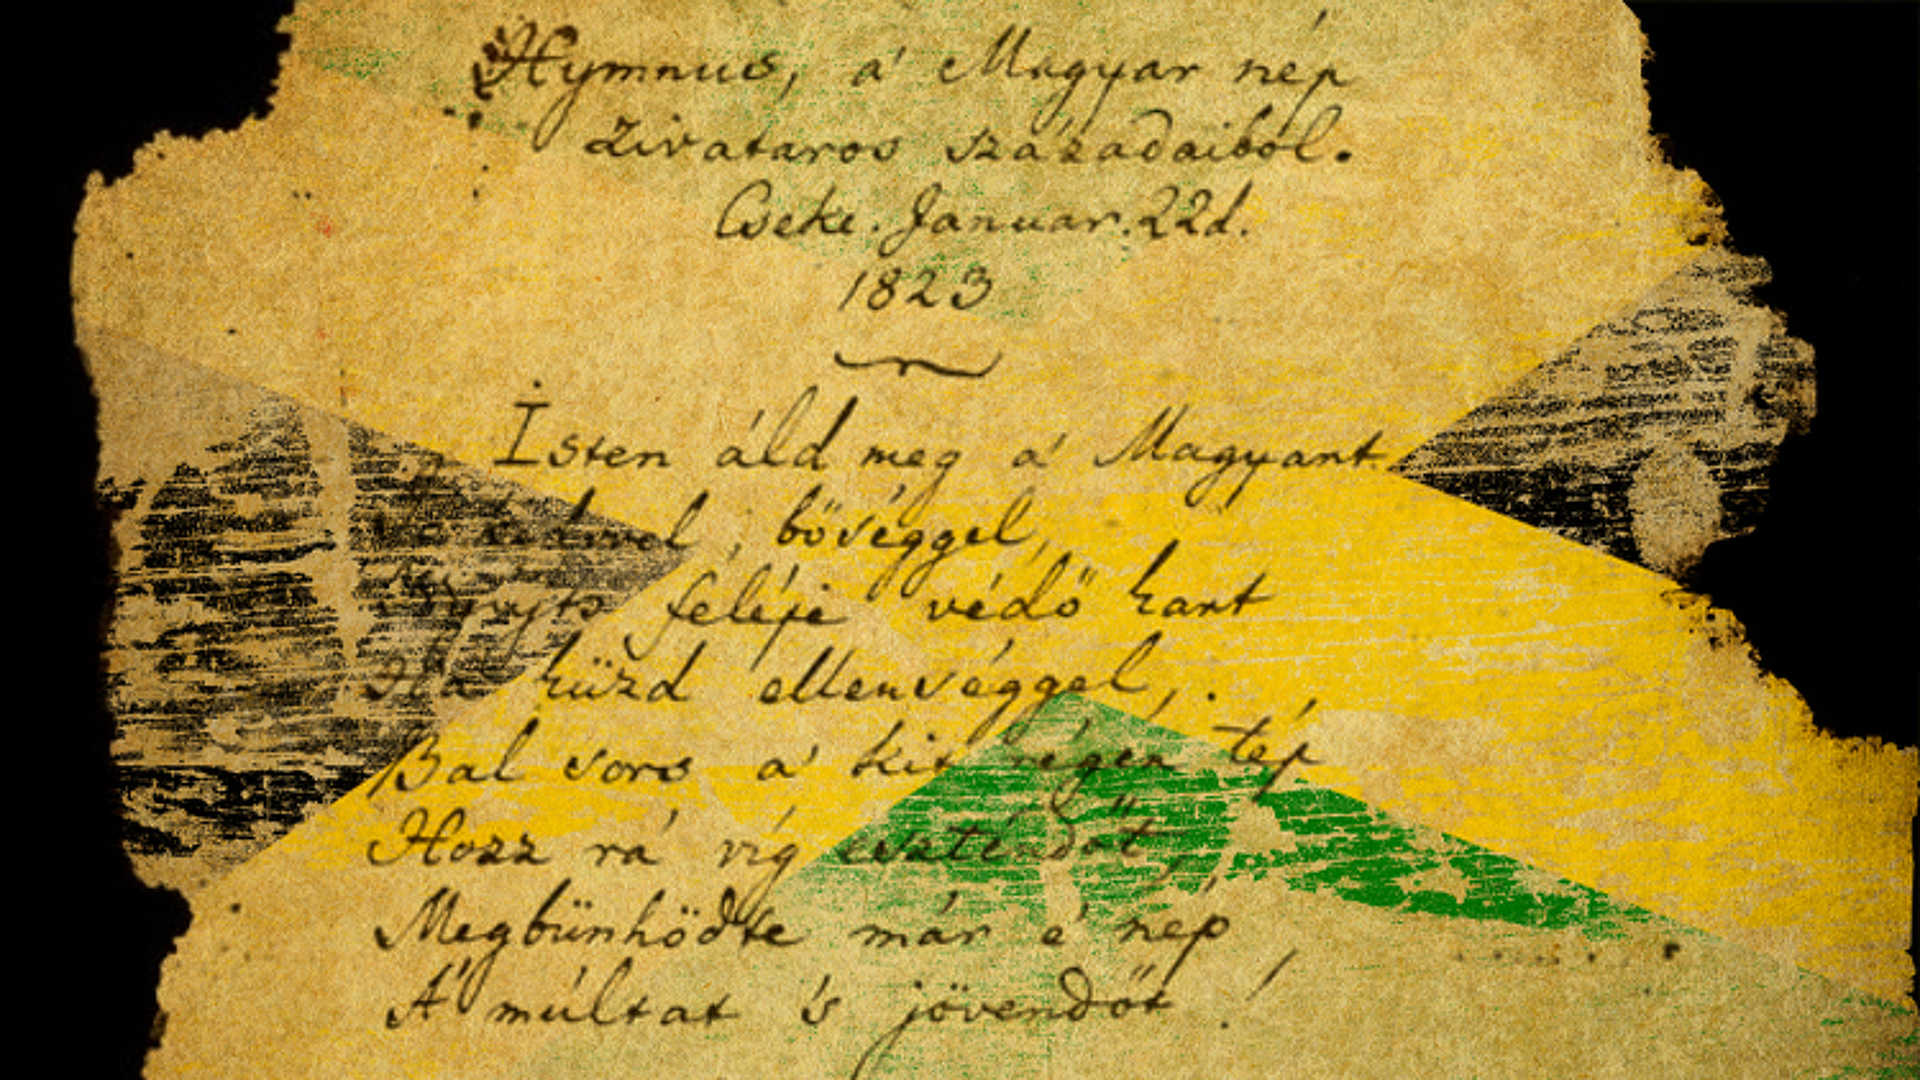 Hymnus, a' Magyar nép
zivataros századaiból.
Cseke. Januar. 22d.
1823
Isten áld meg a' Magyart
bőséggel,
Nyujts feléje védő kart
Ha küzd ellenséggel,
Bal sors a' kit régen tép
Hozz rá víg esztendőt,
Megbünhödte már é nép
A' múltat 's jövendőt!